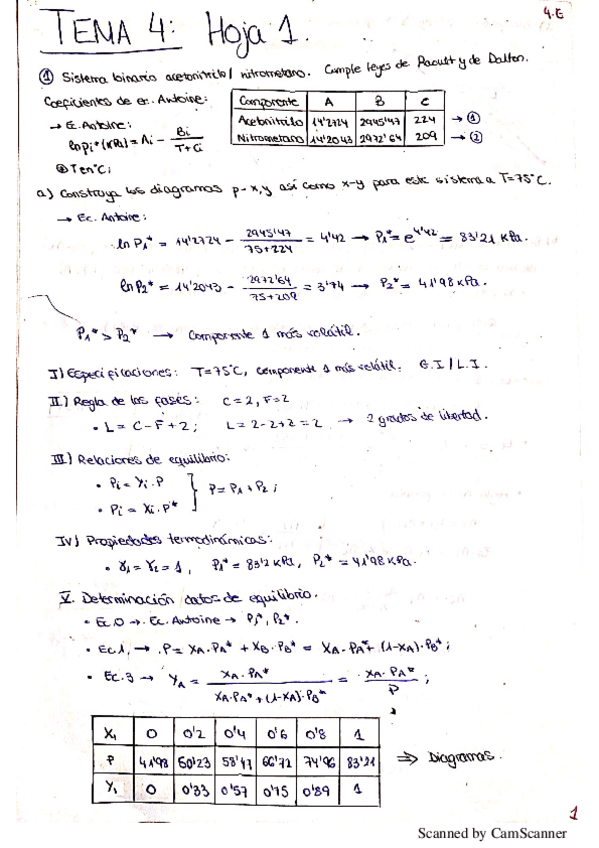 TEMA 4: Hoja 1.
4.E
① Sistema binario acetonitrilo / nitrometano. Cumple leyes de Raoult y de Dalton.
Coeficientes de ec. Antoine:
Componente A B C
Acetonitrilo 14'2724 2945'47 224 → ①
Nitrometano 14'2043 2972'64 209 → ②
→ E. Antoine:
ln Pi* (kPa) = Ai - Bi / T+Ci
T en °C;
a) Construya los diagramas p-x,y así como x-y para este sistema a T=75°C.
→ Ec. Antoine:
ln P1* = 14'2724 - 2945'47 / 75+224 = 4'42 → P1* = e^4'42 = 83'21 kPa.
ln P2* = 14'2043 - 2972'64 / 75+209 = 3'74 → P2* = 41'98 kPa.
P1* > P2* → Componente 1 más volátil.
I) Especificaciones: T=75°C, componente 1 más volátil. G.I / L.I.
II) Regla de las fases: C=2, F=2
• L = C-F+2; L = 2-2+2 = 2 → 2 grados de libertad.
III) Relaciones de equilibrio:
• Pi = yi·P
• Pi = xi·P* } P = P1 + P2;
IV) Propiedades termodinámicas:
• γ1 = γ2 = 1, P1* = 83'2 kPa, P2* = 41'98 kPa.
V. Determinación datos de equilibrio.
• Ec.0 → Ec. Antoine → P1*, P2*.
• Ec.1, → P = XA·PA* + XB·PB* = XA·PA* + (1-XA)·PB*;
• Ec.3 → YA = XA·PA* / XA·PA* + (1-XA)·PB* = XA·PA* / P;
X1 0 0'2 0'4 0'6 0'8 1
P 41'98 50'23 58'47 66'72 74'96 83'21 ⇒ Diagramas.
Y1 0 0'33 0'57 0'75 0'89 1
1
Scanned by CamScanner